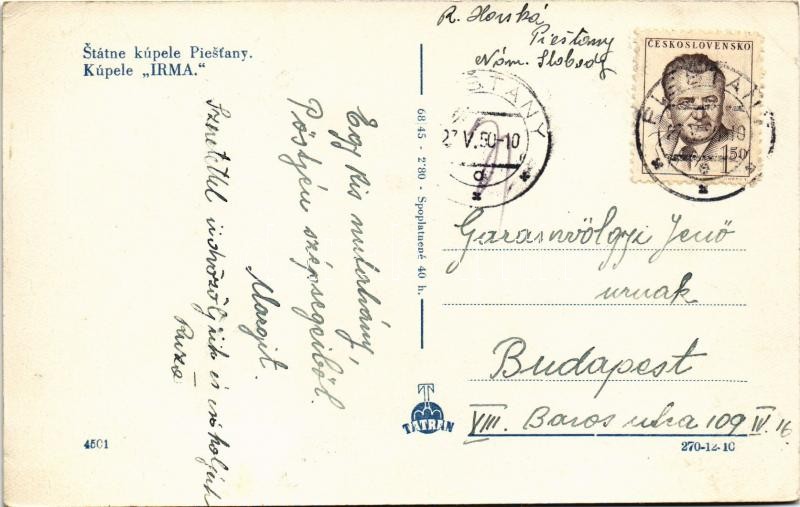 Štátne kúpele Piešťany.
Kúpele „IRMA.“
R. Horská
Piešťany
Nám. Slobody
ČESKOSLOVENSKO
1.50
PIEŠŤANY
27.V.50-10
Egy kis mutatvány
Pöstyén szépségeiből.
Margit.
Szeretettel üdvözöljük és csókoljuk
Ruzsa
68/45 - 2'80 - Spoplatnené 40 h.
Garasvölgyi Jenő
urnak
Budapest
VIII. Baros utca 109 IV. 16
TATRAN
4501
270-12-10